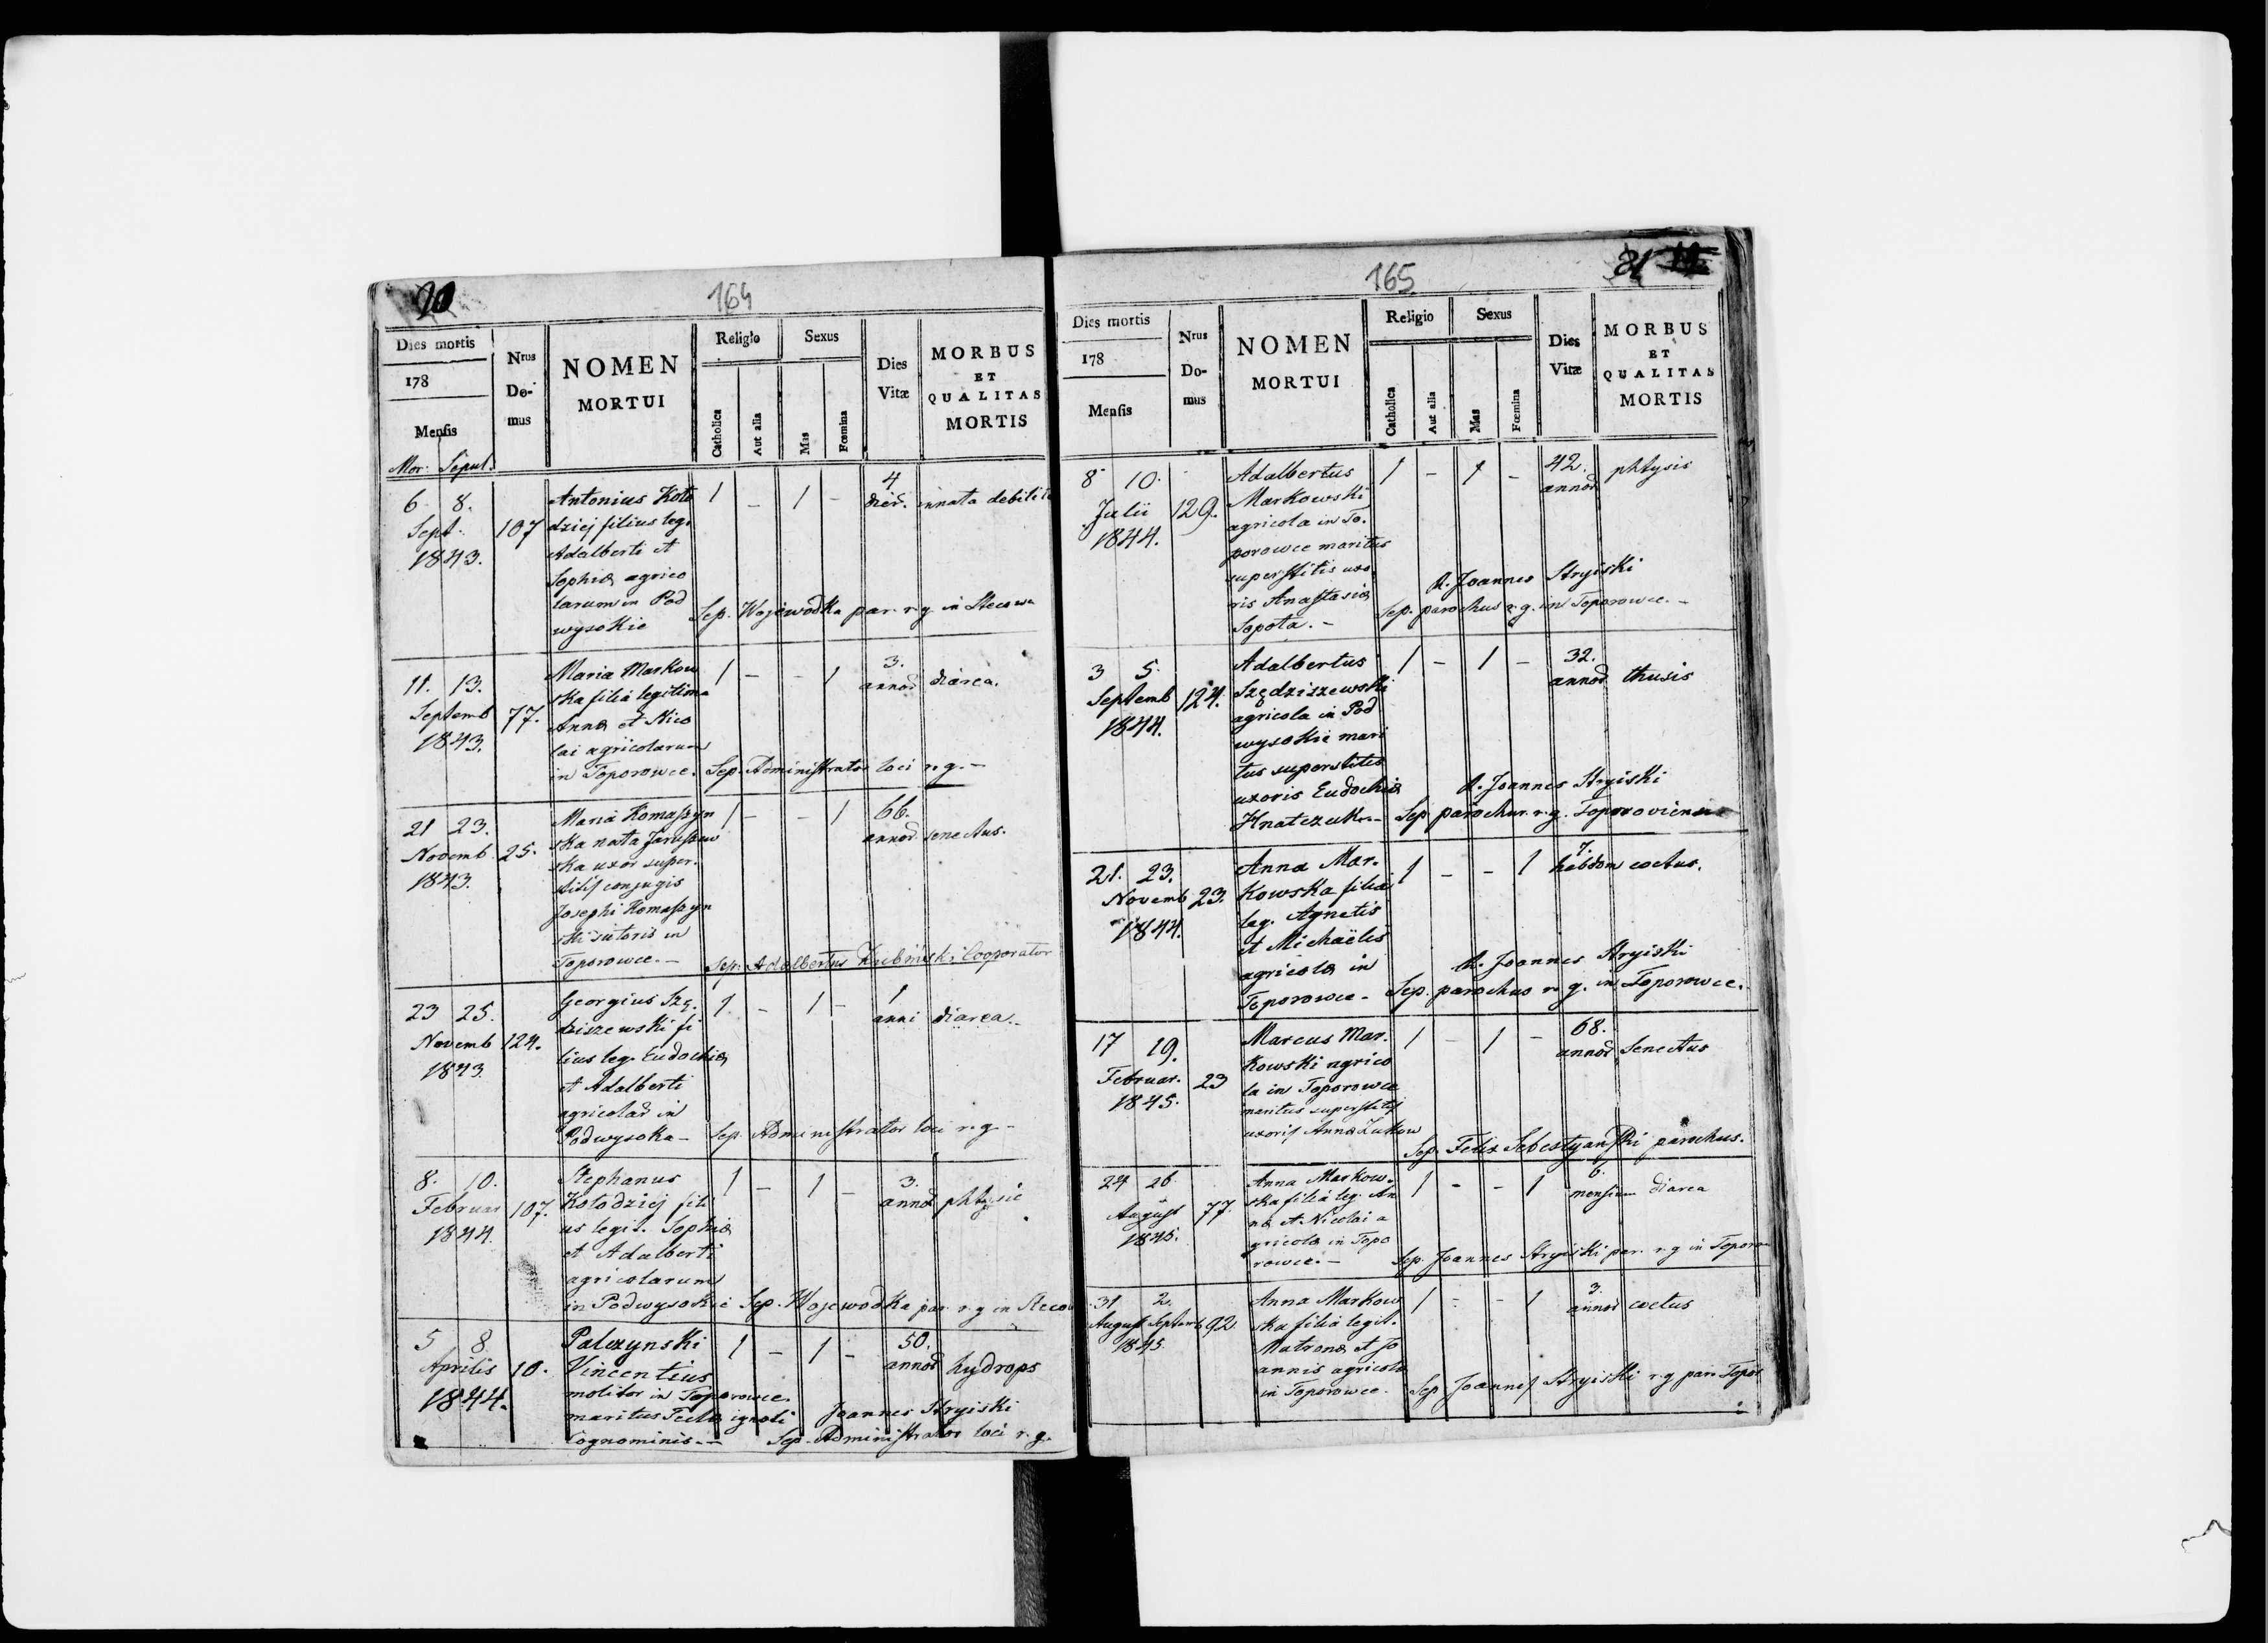 164
Dies mortis
178
Mensis
Mor. Sepul.
Nrus
Do-
mus
NOMEN
MORTUI
Religio
Catholica
Aut alia
Sexus
Mas
Fœmina
Dies
Vitæ
MORBUS
ET
QUALITAS
MORTIS
6 8.
Sept.
1843.
107
Antonius Koło
dziej filius leg.
Adalberti et
Sophiæ agrico
larum in Pod
wysokie
1 - 1 -
4
dier.
innata debilit
Sep. Wojewodka par. r. g. in Stecowa
11. 13.
Septemb
1843.
77.
Maria Markow
ska filia legitima
Annæ et Nico
lai agricolarum
in Toporowce.
1 - - 1
3.
annor
diarea.
Sep. Administrator loci r. g. -
21 23.
Novemb.
1843.
25.
Maria Komaszyn
ska nata
ska uxor super-
stitis conjugis
Josephi Komaszyn
ski sutoris in
Toporowce. -
1 - - 1
66.
annor
senectus.
Sep. Adalbertus Cooporator
23 25.
Novemb
1843.
124.
Georgius Szę-
dziszewski fi
lius leg. Eudochiæ
et Adalberti
agricolar in
Podwysoka -
1 - 1 -
1
anni
diarea.
Sep. Administrator loci r. g. -
8. 10.
Februar
1844.
107.
Stephanus
Kołodziej fili
us legit. Sophiæ
et Adalberti
agricolarum
in Podwysokie
1 - 1 -
3.
annor
phtysis
Sep. Wojewodka par. r. g in Stecow
5 8.
Aprilis
1844.
10.
Palczynski
Vincentius
molitor in Toporowce.
maritus Teclæ ignoti
Cognominis. -
1 - 1 -
50.
annor
hydrops
Joannes Stryiski
Sep. Administrator loci r. g.
165
81
Dies mortis
178
Mensis
Nrus
Do-
mus
NOMEN
MORTUI
Religio
Catholica
Aut alia
Sexus
Mas
Fœmina
Dies
Vitæ
MORBUS
ET
QUALITAS
MORTIS
8 10.
Julii
1844.
129.
Adalbertus
Markowski
agricola in To-
porowce maritus
superstitis uxo
ris Anastasiæ
Sopota. -
1 - 1 -
42.
annor
phtysis
R. Joannes Stryiski
Sep. parochus r. g. in Toporowce. -
3 5.
Septemb
1844.
124.
Adalbertus
Szędziszewski
agricola in Pod
wysokie mari
tus superstites
uxoris Eudochiæ
Hnatczuk. -
1 - 1 -
32.
annor
thusis
R. Joannes Stryiski
Sep. parochus r. g. Toporoviensis
21. 23.
Novemb
1844.
23.
Anna Mar-
kowska filia
leg. Agnetis
et Michaëlis
agricolæ in
Toporowce -
1 - - 1
7.
hebdom
coctus.
R. Joannes Stryiski
Sep. parochus r. g. in Toporowce.
17 19.
Februar.
1845.
23
Marcus Mar-
kowski agrico
la in Toporowce
maritus superstitis
uxoris Annæ Zukow
1 - 1 -
68.
annor
Senectus
Sep. Felix Sebestyański parochus.
24 26.
August
1845.
77.
Anna Markow-
ska filia leg. An
næ et Nicolai a
gricolæ in Topo
rowce. -
1 - - 1
6.
mensium
diarea
Sep. Joannes Stryiski par. r. g in Toporow
31 2.
August Septemb
1845.
92.
Anna Markow
ska filia legit.
Matronæ et Jo
annis agricolæ
in Toporowce.
1 - - 1
3.
annor
coctus
Sep. Joannes Stryiski r. g par. Topor